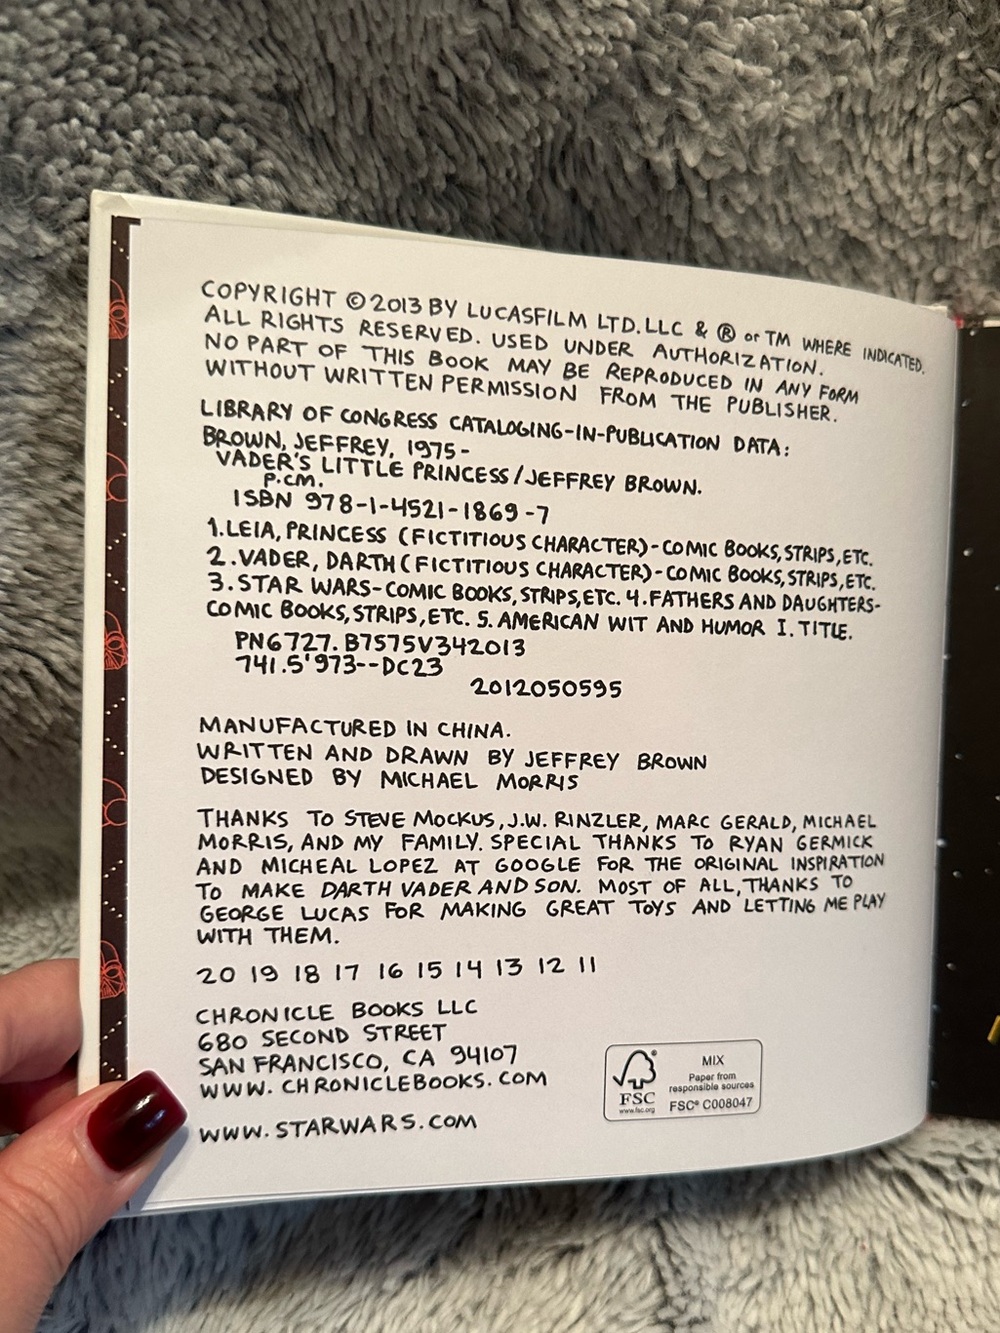 COPYRIGHT © 2013 BY LUCASFILM LTD. LLC & ® or TM WHERE INDICATED.
ALL RIGHTS RESERVED. USED UNDER AUTHORIZATION.
NO PART OF THIS BOOK MAY BE REPRODUCED IN ANY FORM
WITHOUT WRITTEN PERMISSION FROM THE PUBLISHER.
LIBRARY OF CONGRESS CATALOGING-IN-PUBLICATION DATA:
BROWN, JEFFREY, 1975-
VADER'S LITTLE PRINCESS / JEFFREY BROWN.
P.CM.
ISBN 978-1-4521-1869-7
1. LEIA, PRINCESS (FICTITIOUS CHARACTER)-COMIC BOOKS, STRIPS, ETC.
2. VADER, DARTH (FICTITIOUS CHARACTER)-COMIC BOOKS, STRIPS, ETC.
3. STAR WARS-COMIC BOOKS, STRIPS, ETC. 4. FATHERS AND DAUGHTERS-
COMIC BOOKS, STRIPS, ETC. 5. AMERICAN WIT AND HUMOR I. TITLE.
PN6727. B7575V342013
741.5'973--DC23
2012050595
MANUFACTURED IN CHINA.
WRITTEN AND DRAWN BY JEFFREY BROWN
DESIGNED BY MICHAEL MORRIS
THANKS TO STEVE MOCKUS, J.W. RINZLER, MARC GERALD, MICHAEL
MORRIS, AND MY FAMILY. SPECIAL THANKS TO RYAN GERMICK
AND MICHEAL LOPEZ AT GOOGLE FOR THE ORIGINAL INSPIRATION
TO MAKE DARTH VADER AND SON. MOST OF ALL, THANKS TO
GEORGE LUCAS FOR MAKING GREAT TOYS AND LETTING ME PLAY
WITH THEM.
20 19 18 17 16 15 14 13 12 11
CHRONICLE BOOKS LLC
680 SECOND STREET
SAN FRANCISCO, CA 94107
WWW. CHRONICLEBOOKS. COM
WWW. STARWARS. COM
FSC
www.fsc.org
MIX
Paper from
responsible sources
FSC® C008047